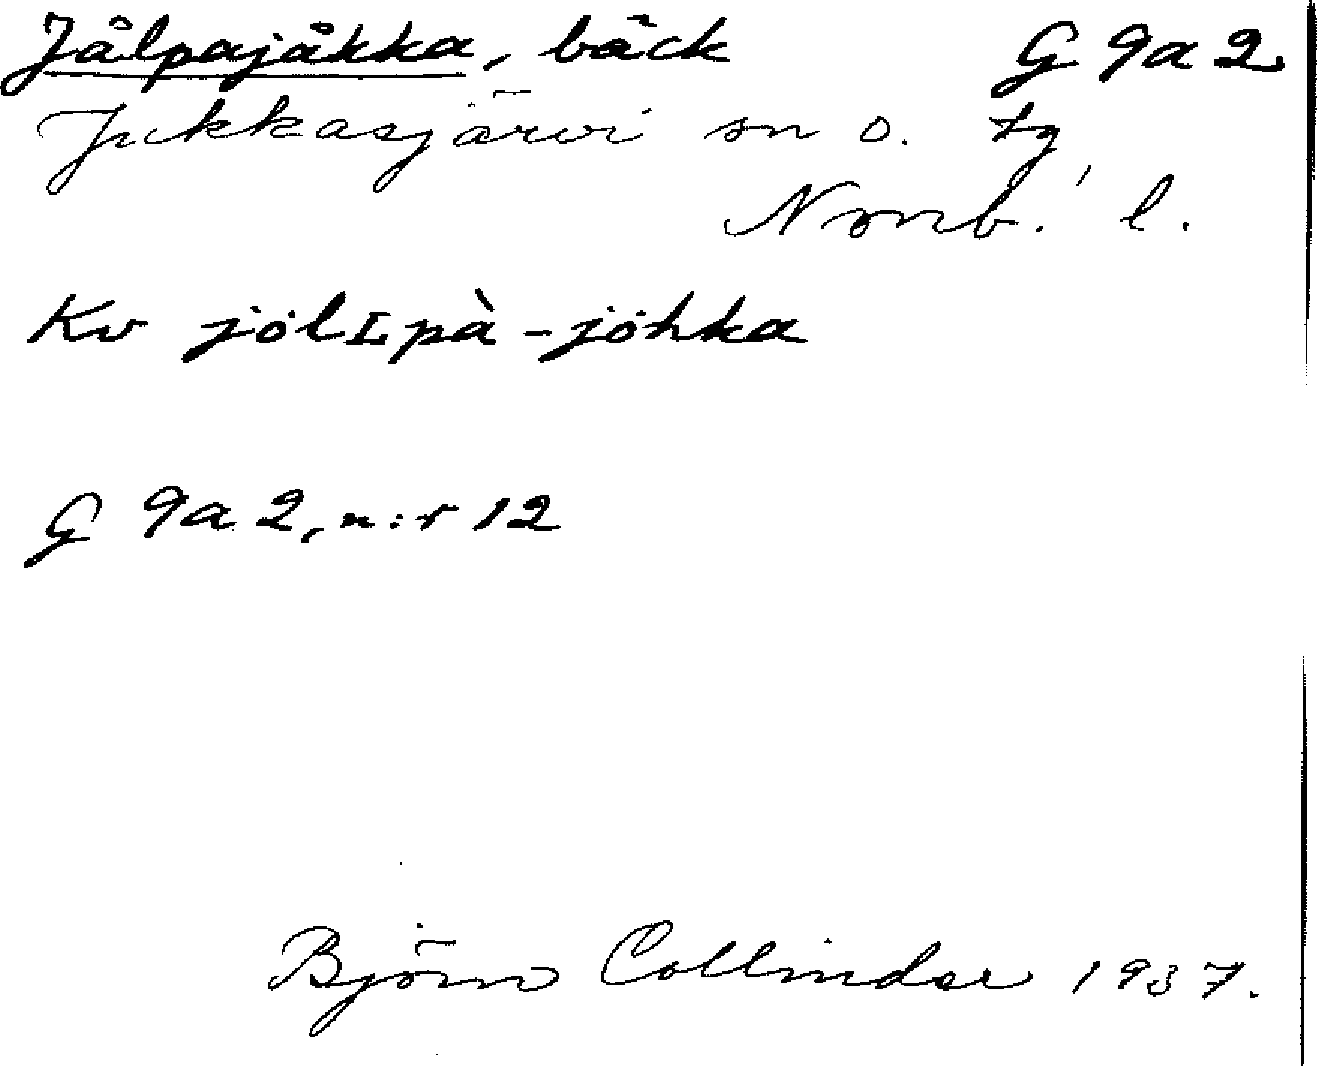 Jålpajåkka, bäck G 9a 2
Jukkasjärvi sn o. tg
Norrb. l.
Kv jòlLpà-jòhka
G 9a 2, n:r 12
Björn Collinder 1937.